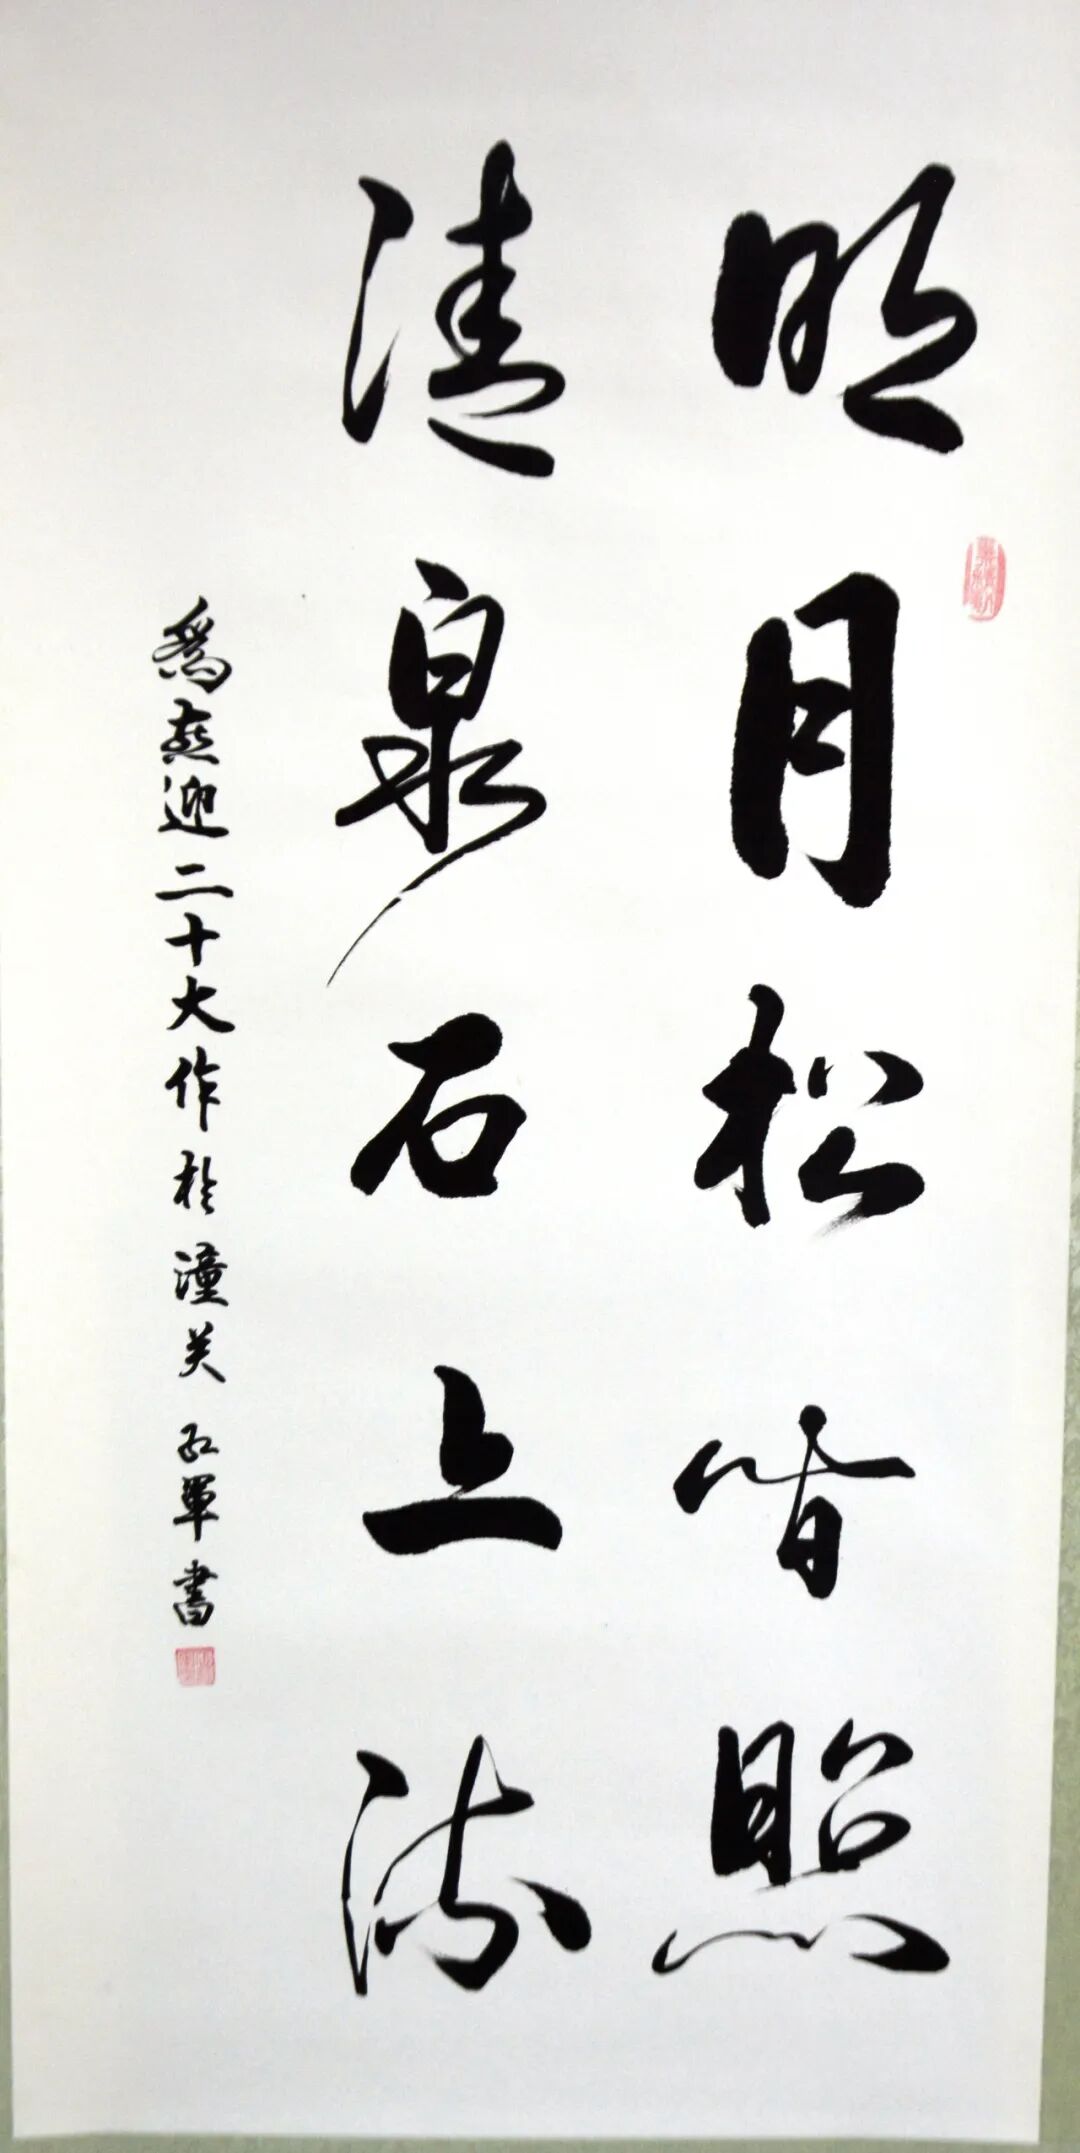 明月松間照
清泉石上流
為喜迎二十大作於潼关 红軍書